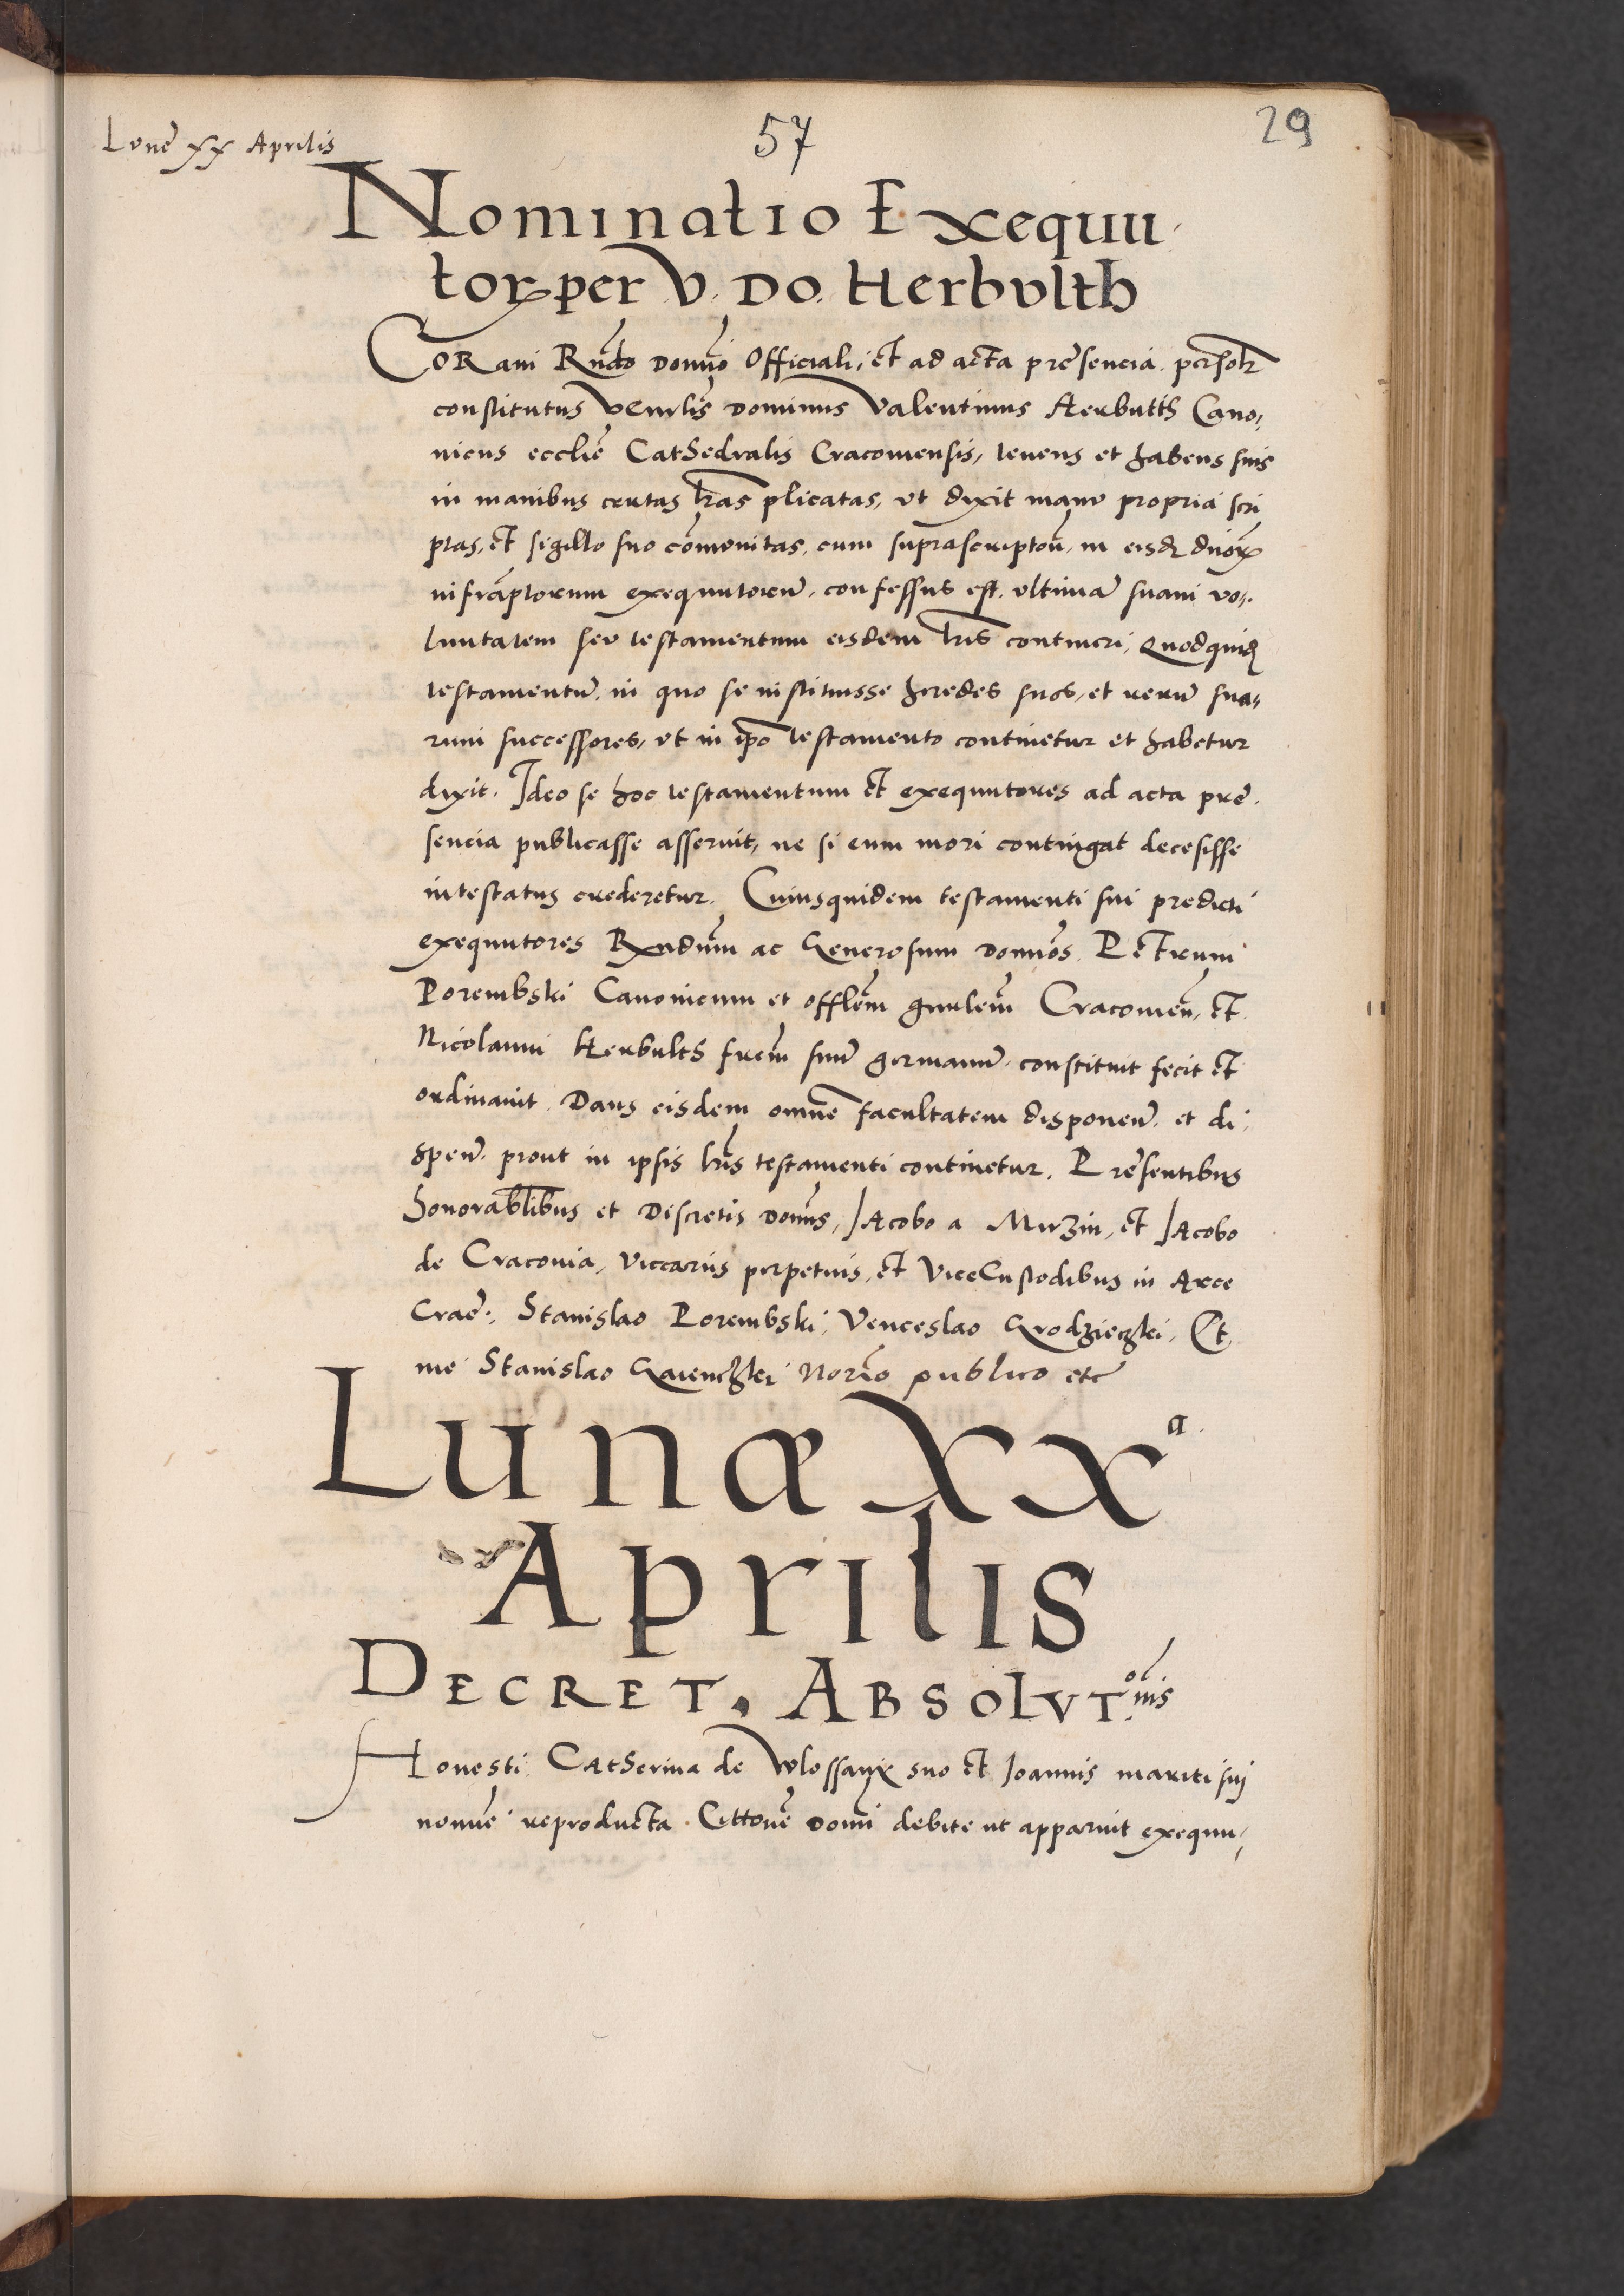 Lunę xx Aprilis
57
29
Nominatio Exequu
torꝝ per V. DO. Herbvlth
CORam Rndo Domio Officiali, et ad acta pręsencia personlr
constitutus Venrlis dominus Valentinus Herbultth Cano,
nicus ecclię Cathedralis Cracoviensis, tenens et habens suis
in manibus certas lras plicatas, ut dixit manu propria scri
ptas, et sigillo suo cōmunitas, cum suprascriptoū, in eisdē duorꝝ
infraptorum exequutorum, confessus est, ultimā suam vo,
luntatem seu testamentum eisdem lris contineri, Quodquidē
testamentū, in quo se instituisse heredes suos, et rerū sua,
rum successores, ut in ipo testamento continetur et habetur
dixit. Ideo se hoc testamentum et exequutores ad acta pre,
sencia publicasse asseruit, ne si eum mori contingat decesisse
intestatus crederetur. Cuiusquidem testamenti sui predicti
exequutores Rndum ac Generosum domios, Petrum
Porembski Canonicum et offlem gnrlem Cracovien, et
Nicolaum Herbulth frem suū germanū, constituit fecit et
ordinavit. Dans eisdem omnē facultatem disponen. et di,
spen. prout in ipsis lris testamenti continetur. Presentibus
honorablibus et Discretis domis, Jacobo a Mirzin, et Jacobo
de Cracovia, Viccariis perpetuis, et ViceCustodibus in Arce
Crac. Stanislao Porembski, Venceslao Grodzieczki, Et
me Stanislao Gaienczkei Norio publico etc
Lunæ XXa
Aprilis
DECRET, ABSOLVT.ois
Honesti Catherina de Wlossany suo et Joannis mariti sui
nomie reproducta Cittone Domi debite ut apparuit exequu,